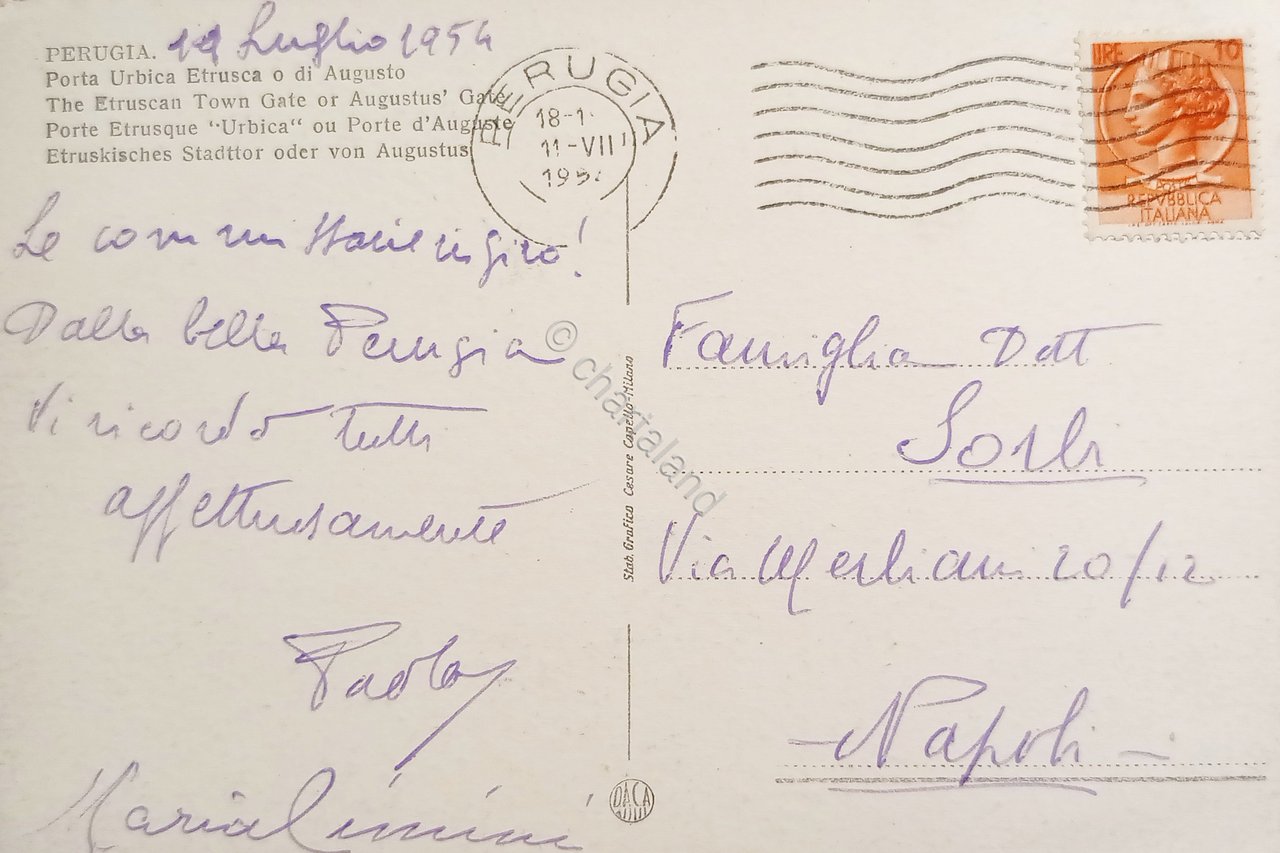 PERUGIA. 11 Luglio 1954
Porta Urbica Etrusca o di Augusto
The Etruscan Town Gate or Augustus' Gate
Porte Etrusque "Urbica" ou Porte d'Auguste
Etruskisches Stadttor oder von Augustus
PERUGIA
18-1
11-VII
195
LIRE 10
POSTE
REPVBBLICA
ITALIANA
in giro!
Dalla bella Perugia
Vi ricordo tutti
affettuosamente
Paola
Maria
Stab. Grafico Cesare Capello-Milano
DACA
© chartaland
Famiglia Dott
Sorbi
Via Merliani 20/12
- Napoli -